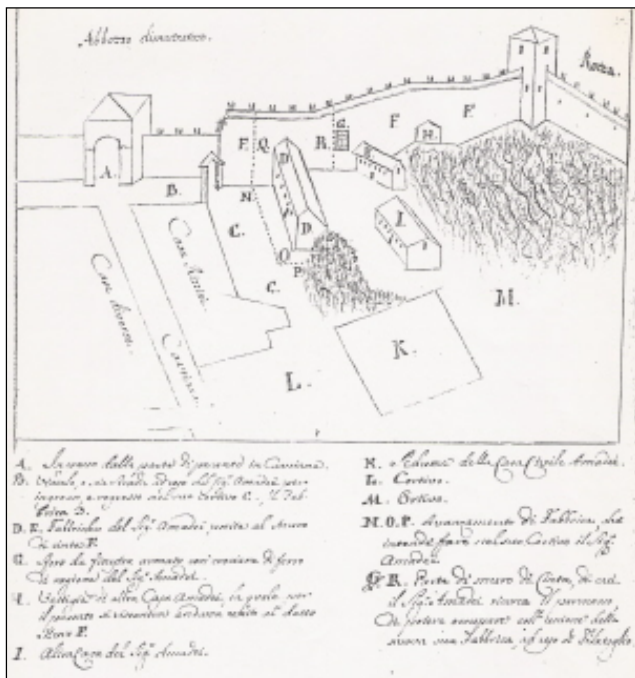 Abbozzo dimostrativo.
Rocca.
A
B.
C.
C.
F.
Q.
D
D.
N.
O
P.
R.
G.
F
H
F.
I
K.
L.
M.
Case diverse.
Case
A. Ingresso dalla parte di ponente in
B. Vicolo, o sia strada ad uso del Sig.
ingresso, e regresso nel suo Cortivo C., e Fab-
brica D.
D. E. Fabbriche del Sig. Amadei unite al Muro
di cinta F.
G. foro da finestra armato con crociera di ferro
di ragione del Sig. Amadei.
Vestigia di altra Casa Amadei, la quale per
il passato si
Muro F.
I. Altra Casa del Sig. Amadei.
K. della Casa Civile Amadei.
L. Cortivo.
M. Ortivo.
N. O. P. Avanzamento di Fabbrica, che
intende fare nel suo Cortivo il Sig.
Amadei.
Q. R. Parte di muro di Cinta, di cui
il Sig. Amadei ricerca il permesso
di potere occupare coll' unione della
nuova sua Fabbrica, ad uso di Filatoglio.